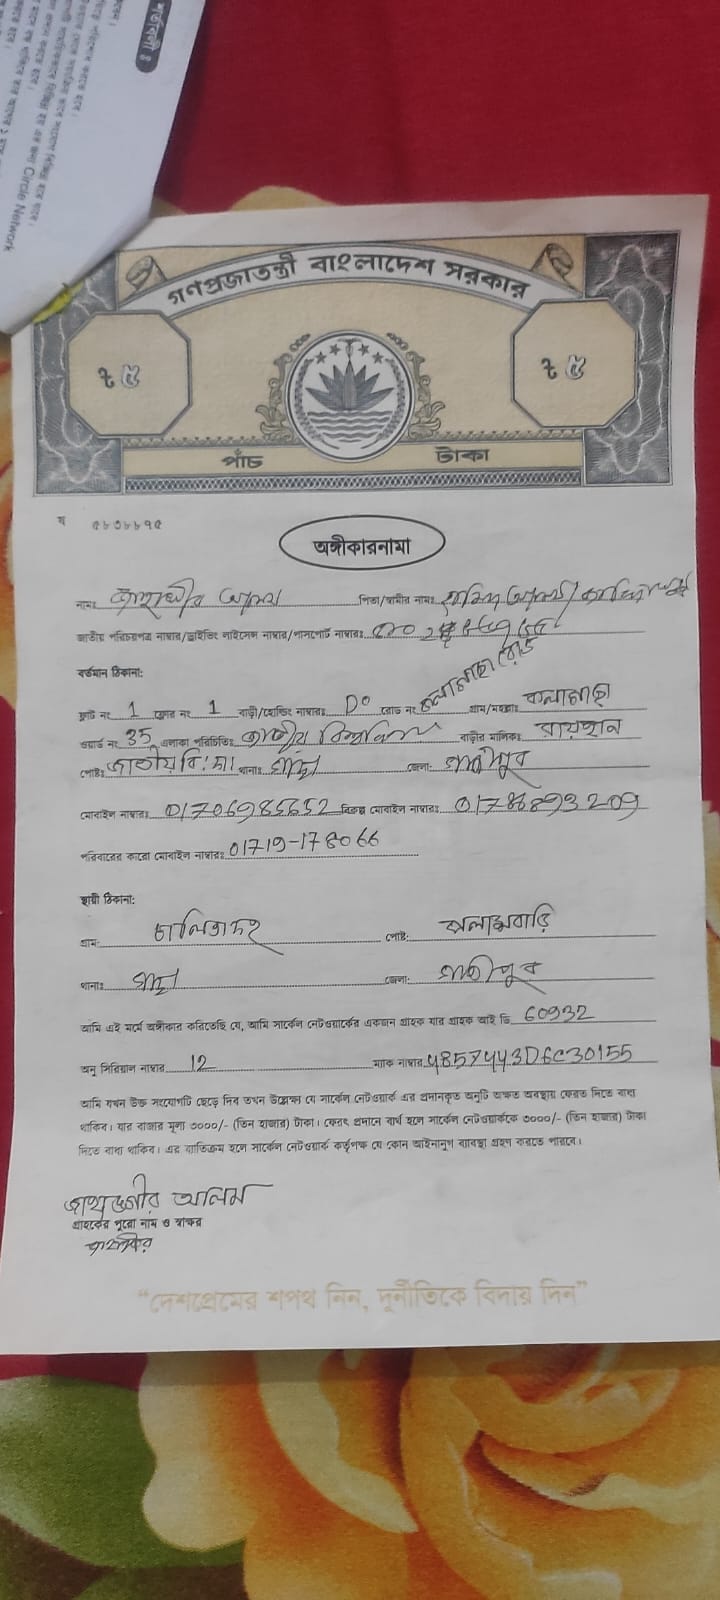 শর্তাবলী ঃ
Circle Network
গণপ্রজাতন্ত্রী বাংলাদেশ সরকার
৳ ৫ ৳ ৫
পাঁচ টাকা
ষ ৫৮৩৮৮৭৫
অঙ্গীকারনামা
নামঃ পিতা/স্বামীর নামঃ
জাতীয় পরিচয়পত্র নাম্বার/ড্রাইভিং লাইসেন্স নাম্বার/পাসপোর্ট নাম্বারঃ
বর্তমান ঠিকানা:
ফ্লাট নং 1 ফ্লোর নং 1 বাড়ী/হোল্ডিং নাম্বারঃ D০ রোড নং কলামেছা রোড গ্রাম/মহল্লাঃ কলামেছা
ওয়ার্ড নং 35 এলাকা পরিচিতিঃ জাতীয় বিশ্ববিদ্যালয় বাড়ীর মালিকঃ রায়হান
পোষ্টঃ জাতীয় বি: দ্যা: থানাঃ গাছা জেলা: গাজীপুর
মোবাইল নাম্বারঃ 01706985652 বিকল্প মোবাইল নাম্বারঃ
পরিবারের কারো মোবাইল নাম্বারঃ 01719-178066
স্থায়ী ঠিকানা:
গ্রাম: পোষ্ট: পলাসবাড়ি
থানাঃ গাছা জেলা: গাজীপুর
আমি এই মর্মে অঙ্গীকার করিতেছি যে, আমি সার্কেল নেটওয়ার্কের একজন গ্রাহক যার গ্রাহক আই ডি 60932
অনু সিরিয়াল নাম্বার 12 ম্যাক নাম্বার 4857443D6C30155
আমি যখন উক্ত সংযোগটি ছেড়ে দিব তখন উল্লেখ্য যে সার্কেল নেটওয়ার্ক এর প্রদানকৃত অনুটি অক্ষত অবস্থায় ফেরত দিতে বাধ্য
থাকিব। যার বাজার মূল্য ৩০০০/- (তিন হাজার) টাকা। ফেরৎ প্রদানে ব্যর্থ হলে সার্কেল নেটওয়ার্ককে ৩০০০/- (তিন হাজার) টাকা
দিতে বাধ্য থাকিব। এর ব্যতিক্রম হলে সার্কেল নেটওয়ার্ক কর্তৃপক্ষ যে কোন আইনানুগ ব্যবস্থা গ্রহণ করতে পারবে।
জাহাঙ্গীর আলম
গ্রাহকের পুরো নাম ও স্বাক্ষর
জাহাঙ্গীর
“দেশপ্রেমের শপথ নিন, দুর্নীতিকে বিদায় দিন”